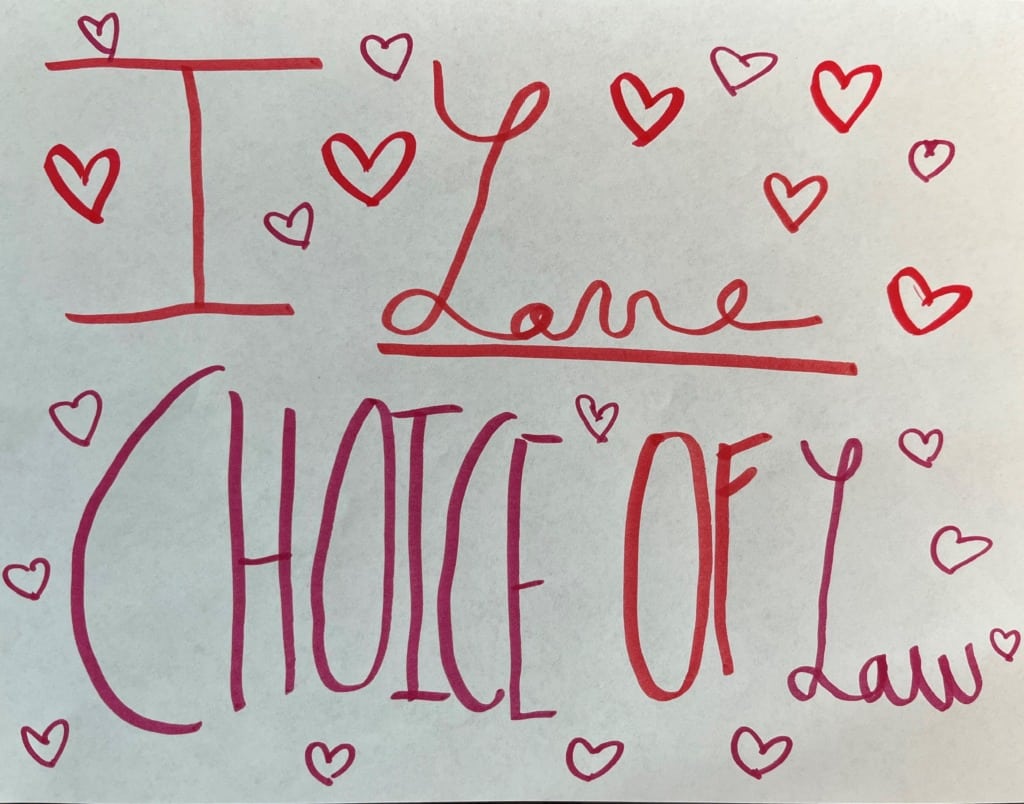 I Love
CHOICE OF Law